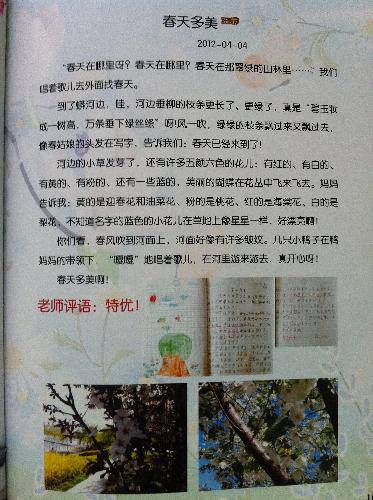 春天多美
2012-04-04
“春天在哪里呀？春天在哪里？春天在那翠绿的山林里……”，我们
唱着歌儿去外面找春天。
到了蟒河边，哇，河边垂柳的枝条更长了、更绿了，真是“碧玉妆
成一树高，万条垂下绿丝绦”呀!风一吹，绿绿的枝条飘过来又飘过去，
像春姑娘的头发在写字，告诉我们：春天已经来到了！
河边的小草发芽了，还有许多五颜六色的花儿：有红的、有白的、
有黄的、有粉的、还有一些蓝的，美丽的蝴蝶在花丛中飞来飞去。妈妈
告诉我：黄的是迎春花和油菜花、粉的是桃花、红的是海棠花、白的是
梨花，不知道名字的蓝色的小花儿在草地上像星星一样，好漂亮啊！
你们看，春风吹到河面上，河面好像有许多皱纹。几只小鸭子在鸭
妈妈的带领下，“嘎嘎”地唱着歌儿，在河里游来游去，真开心呀！
春天多美啊！
老师评语：特优！